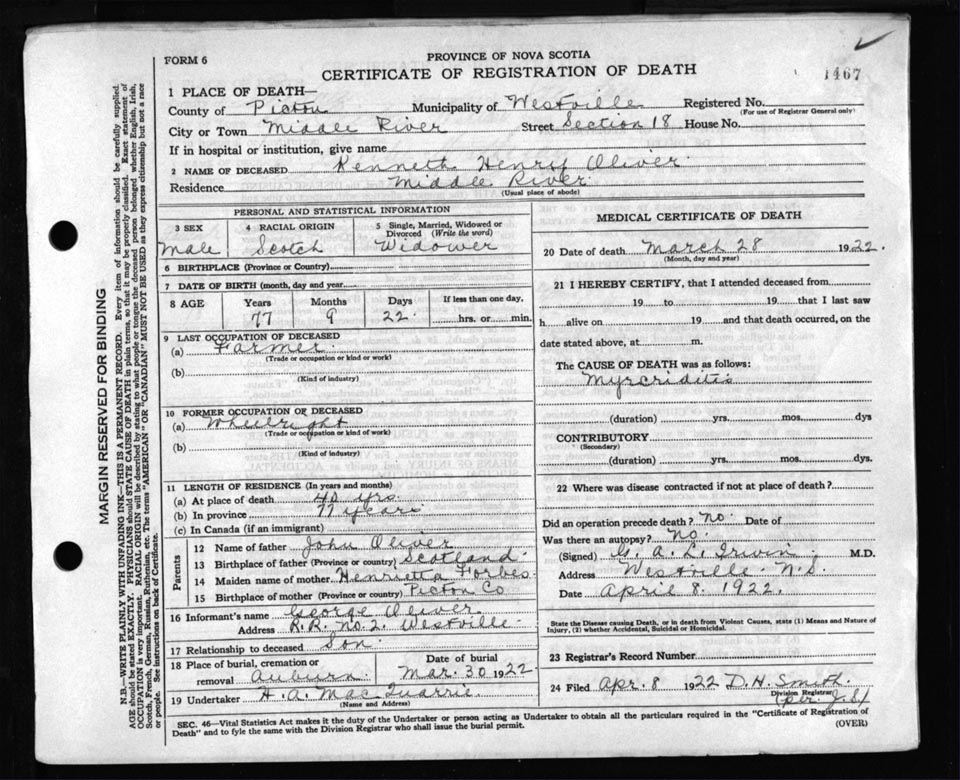 FORM 6
PROVINCE OF NOVA SCOTIA
CERTIFICATE OF REGISTRATION OF DEATH
1467
1 PLACE OF DEATH—
County of Pictou Municipality of Westville Registered No.
(For use of Registrar General only)
City or Town Middle River Street Section 18 House No.
If in hospital or institution, give name
2 NAME OF DECEASED Kenneth Henry Oliver
Residence Middle River
(Usual place of abode)
PERSONAL AND STATISTICAL INFORMATION
3 SEX 4 RACIAL ORIGIN 5 Single, Married, Widowed or Divorced (Write the word)
Male Scotch Widower
6 BIRTHPLACE (Province or Country)
7 DATE OF BIRTH (month, day and year)
8 AGE Years Months Days If less than one day,
77 9 22 hrs. or min.
9 LAST OCCUPATION OF DECEASED
(a) Farmer
(Trade or occupation or kind or work)
(b)
(Kind of industry)
10 FORMER OCCUPATION OR DECEASED
(a) Wheelright
(Trade or occupation or kind of work)
(b)
(Kind of industry)
11 LENGTH OF RESIDENCE (In years and months)
(a) At place of death 40 yrs.
(b) In province 77 years
(c) In Canada (if an immigrant)
Parents
12 Name of father John Oliver
13 Birthplace of father (Province or country) Scotland
14 Maiden name of mother Henrietta Forbes
15 Birthplace of mother (Province or country) Pictou Co
16 Informant's name George Oliver
Address R.R. No. 2. Westville
17 Relationship to deceased Son
18 Place of burial, cremation or removal Auburn Date of burial Mar. 30 1922
19 Undertaker H. A. MacQuarrie
(Name and Address)
MEDICAL CERTIFICATE OF DEATH
20 Date of death March 28 1922.
(Month, day and year)
21 I HEREBY CERTIFY, that I attended deceased from
19 to 19 that I last saw
h alive on 19 and that death occurred, on
date stated above, at m.
The CAUSE OF DEATH was as follows:
(duration) yrs. mos. dys
CONTRIBUTORY
(Secondary)
(duration) yrs. mos. dys.
22 Where was disease contracted if not at place of death?
Did an operation precede death? No. Date of
Was there an autopsy? No.
(Signed) G. A. L. Irwin M.D.
Address Westville N.S.
Date April 8. 1922.
State the Disease causing Death, or in death from Violent Causes, state (1) Means and Nature of
Injury, (2) whether Accidental, Suicidal or Homicidal.
23 Registrar's Record Number
24 Filed Apr. 8 1922 D. H. Smith
Division Registrar
(per. J.S.)
SEC. 46—Vital Statistics Act makes it the duty of the Undertaker or person acting as Undertaker to obtain all the particulars required in the "Certificate of Registration of
Death" and to fyle the same with the Division Registrar who shall issue the burial permit. (OVER)
MARGIN RESERVED FOR BINDING
N.B.—WRITE PLAINLY WITH UNFADING INK—THIS IS A PERMANENT RECORD. Every item of information should be carefully supplied.
AGE should be stated EXACTLY. PHYSICIANS should STATE CAUSE OF DEATH in plain terms, so that it may be properly classified. Exact statement of
OCCUPATION is very important. RACIAL ORIGIN will be described by stating to what people or tongue the deceased person belonged whether English, Irish,
Scotch, French, German, Russian, Ruthenian, etc. The terms "AMERICAN" OR "CANADIAN" MUST NOT BE USED as they express citizenship but not a race
or people. See instructions on back of Certificate.